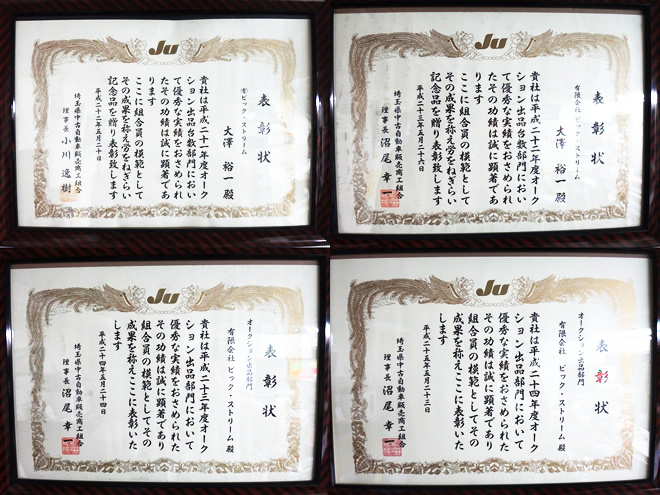 JU
表彰状
㈲ビック・ストリーム
大澤裕一殿
貴社は平成二十一年度オーク
ション出品台数部門におい
て優秀な実績をおさめられ
たその功績は誠に顕著であ
ります
ここに組合員の模範として
その成果を称え労をねぎらい
記念品を贈り表彰致します
平成二十二年五月二十日
埼玉県中古自動車販売商工組合
理事長 小川逸樹
JU
表彰状
有限会社 ビック・ストリーム
大澤裕一殿
貴社は平成二十二年度オーク
ション出品台数部門におい
て優秀な実績をおさめられ
たその功績は誠に顕著であ
ります
ここに組合員の模範として
その成果を称え労をねぎらい
記念品を贈り表彰致します
平成二十三年五月二十六日
埼玉県中古自動車販売商工組合
理事長 沼尾幸一
JU
表彰状
オークション出品部門
有限会社 ビック・ストリーム殿
貴社は平成二十三年度オーク
ション出品部門において
優秀な実績をおさめられた
その功績は誠に顕著であり
組合員の模範としてその
成果を称えここに表彰いた
します
平成二十四年五月二十四日
埼玉県中古自動車販売商工組合
理事長 沼尾幸一
JU
表彰状
オークション出品部門
有限会社 ビック・ストリーム殿
貴社は平成二十四年度オーク
ション出品部門において
優秀な実績をおさめられた
その功績は誠に顕著であり
組合員の模範としてその
成果を称えここに表彰いた
します
平成二十五年五月二十三日
埼玉県中古自動車販売商工組合
理事長 沼尾幸一